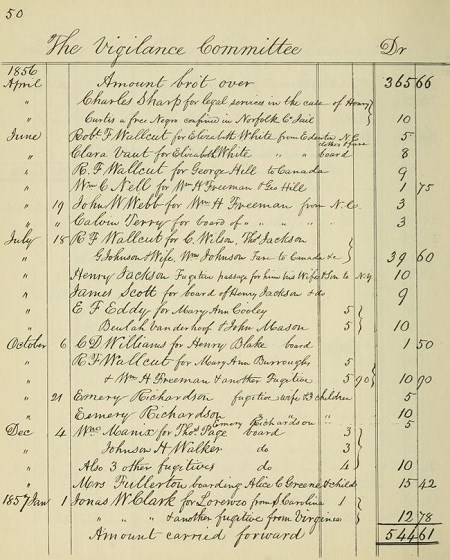 50
The Vigilance Committee Dr
1856
April Amount brot over 365 66
" Charles Sharp for legal services in the case of Henry
" Curtis a free Negro confined in Norfolk Co Jail } 10
June Robt F Wallcut for Elizabeth White from Edenton N.C. 5
" Clara Vaut for Elizabeth White " " board clothes & fare 8
" R. F Wallcut for George Hell to Canada 9
" Wm C Nell for Wm H Freeman & Geo Hill 1 75
" 19 John W Webb for Wm H Freeman from N.Ca 3
" " Calvin Terry for board of " " " " 3
July 18 R F Wallcut for C. Wilson, Thos Jackson
" G Johnson & Wife, Wm Johnson Fare to Canada &c } 39 60
" Henry Jackson Fugitive passage for him his Wife & Son to N.Y. 10
" James Scott for board of Henry Jackson & do 9
" E F Eddy for Mary Ann Cooley 5 }
" Beulah Vanderhoof & John Mason 5 } 10
October 6 C D Williams for Henry Blake board 1 50
" R F Wallcut for Mary Ann Burroughs 5
" & Wm H Freeman & another Fugitive 5 90 } 10 90
" 21 Emery Richardson fugitive wife & 3 children 5
" Eemery Richardson 10
" Emery Richardson " " 5
Dec 4 Wm Manix for Thos Page board 3 }
" Johnson H Walker do 3
" Also 3 other fugitives do 4 } 10
" Mrs Fullerton boarding Alice C Greene & child 15 42
1857 Jan 1 Jonas W Clark for Lorenzo from S Carolina 1 }
" " " & another fugitive from Virginia } 12 78
Amount carried forward 544 61